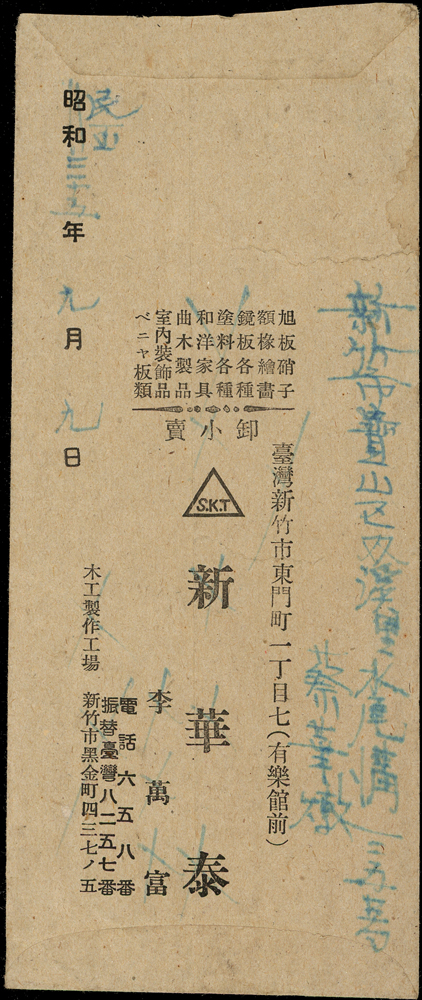 新竹市寶山区双溪里水尾溝三五五号
蔡華
旭板硝子
額椽繪畫
鏡板各種
塗料各種
和洋家具
曲木製品
室內裝飾品
ベニヤ板類
卸小賣
臺灣新竹市東門町一丁目七(有樂館前)
S.K.T
新華泰
李萬富
電話六五八番
振替臺灣八二五七番
木工製作工場 新竹市黑金町四三七ノ五
民國
昭和三十五年九月九日